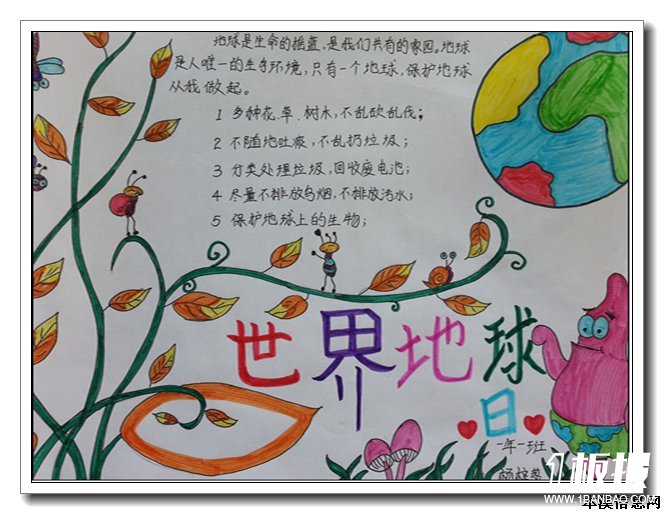 地球是生命的摇蓝,是我们共有的家园。地球
是人唯一的生存环境,只有一个地球,保护地球
从我做起。
1 多种花.草.树木,不乱砍乱伐;
2 不随地吐痰,不乱扔垃圾;
3 分类处理垃圾,回收废电池;
4 尽量不排放乌烟,不排放污水;
5 保护地球上的生物;
世界地球
日
一年一班
1板报
WWW.1BANBAO.COM
本溪信息网